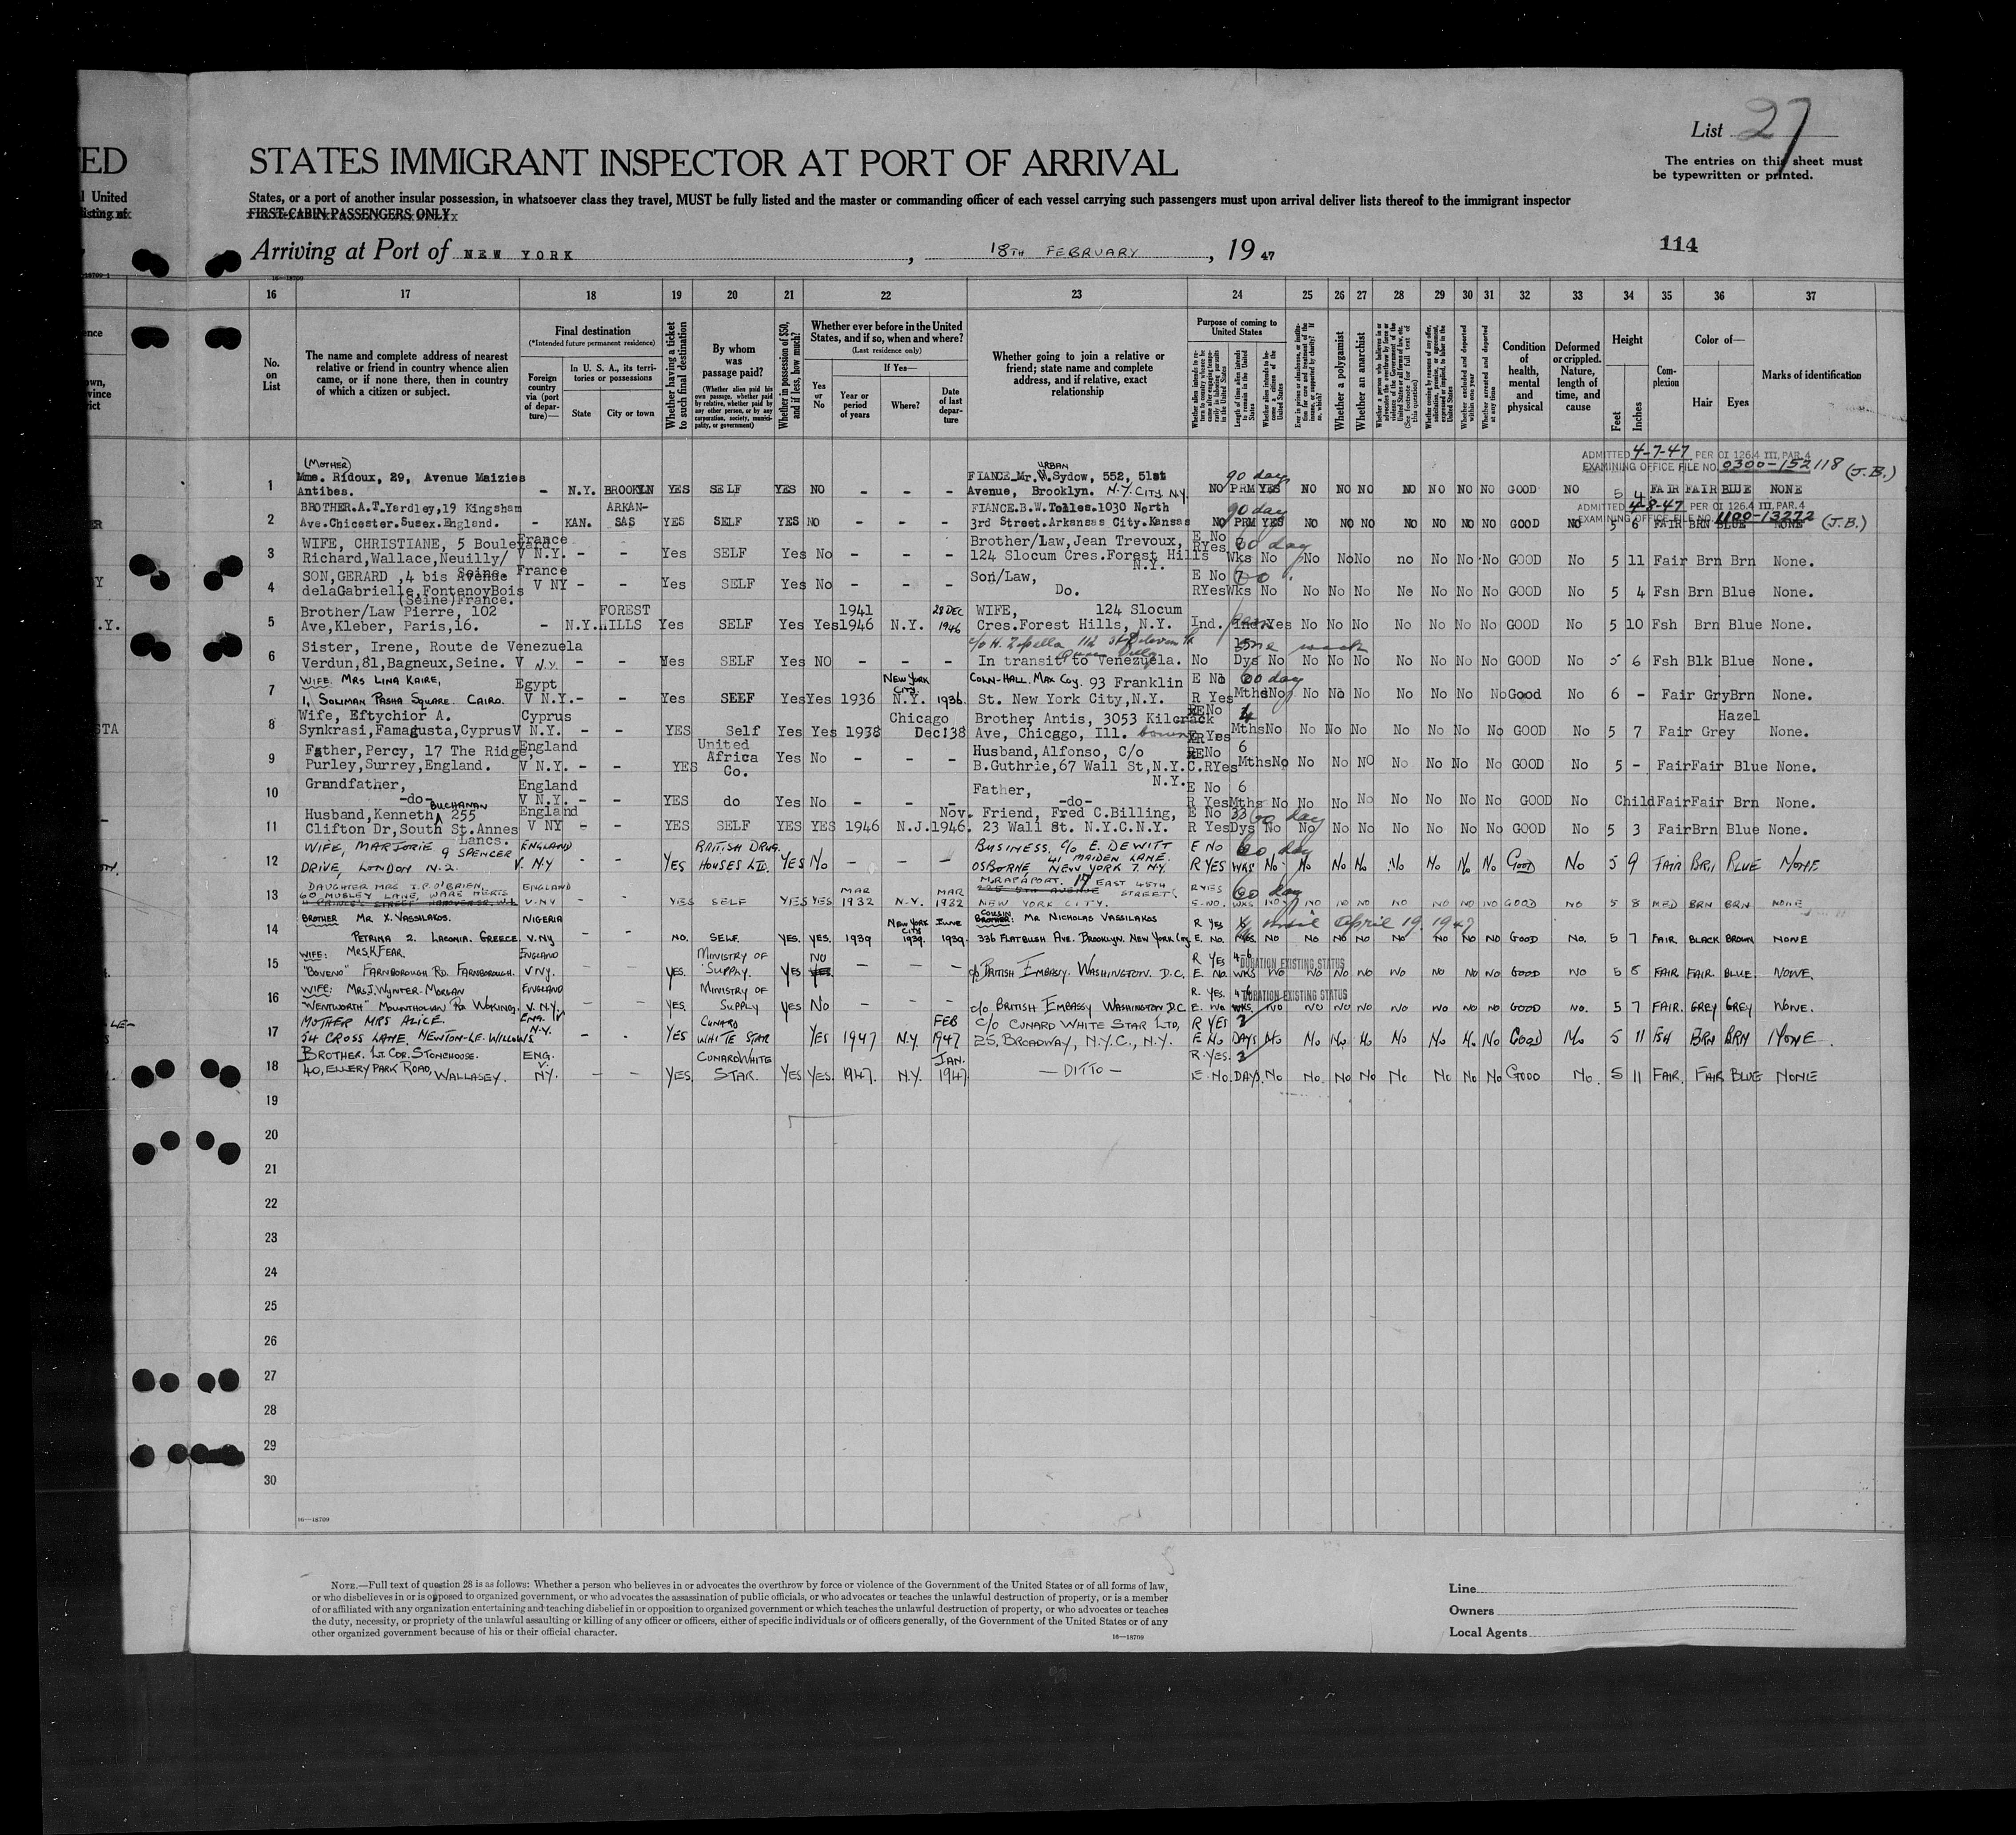 List 27
The entries on this sheet must
be typewritten or printed.
ED
STATES IMMIGRANT INSPECTOR AT PORT OF ARRIVAL
l United
States, or a port of another insular possession, in whatsoever class they travel, MUST be fully listed and the master or commanding officer of each vessel carrying such passengers must upon arrival deliver lists thereof to the immigrant inspector
listing of
FIRST-CABIN PASSENGERS ONLY
Arriving at Port of NEW YORK, 18TH FEBRUARY, 19 47
114
16—18709
16 17 18 19 20 21 22 23 24 25 26 27 28 29 30 31 32 33 34 35 36 37
No. on List
The name and complete address of nearest relative or friend in country whence alien came, or if none there, then in country of which a citizen or subject.
Final destination
(*Intended future permanent residence)
Foreign country via (port of departure)—
In U. S. A., its territories or possessions
State
City or town
Whether having a ticket to such final destination
By whom was passage paid?
(Whether alien paid his own passage, whether paid by relative, whether paid by any other person, or by any corporation, society, municipality, or government)
Whether in possession of $50, and if less, how much?
Whether ever before in the United States, and if so, when and where?
(Last residence only)
Yes or No
If Yes—
Year or period of years
Where?
Date of last departure
Whether going to join a relative or friend; state name and complete address, and if relative, exact relationship
Purpose of coming to United States
Length of time alien intends to remain in the United States
Whether a polygamist
Whether an anarchist
Whether excluded and deported within one year
Whether arrested and deported at any time
Condition of health, mental and physical
Deformed or crippled. Nature, length of time, and cause
Height
Feet
Inches
Complexion
Color of—
Hair
Eyes
Marks of identification
ADMITTED 4-7-47 PER OI 126.4 III, PAR. 4
EXAMINING OFFICE FILE NO. 0300-152118 (J.B.)
1 (MOTHER) Mme. Ridoux, 29, Avenue Maizies Antibes. - N.Y. BROOKLYN YES SELF YES NO - - - FIANCE Mr. URBAN Sydow, 552, 51st Avenue, Brooklyn. N.Y. CITY N.Y. 90 day NO PRM YES NO NO NO NO NO NO NO GOOD NO 5 4 FAIR FAIR BLUE NONE
ADMITTED 4-8-47 PER OI 126.4 III, PAR. 4
EXAMINING OFFICE FILE NO. 1100-13272 (J.B.)
2 BROTHER.A.T.Yardley,19 Kingsham Ave.Chicester.Susex.England. - KAN. ARKAN-SAS YES SELF YES NO - - - FIANCE.B.W.Tolles.1030 North 3rd Street.Arkansas City.Kansas 90 day NO PRM YES NO NO NO NO NO NO NO GOOD NO 5 6 FAIR BRN BLUE NONE
3 WIFE, CHRISTIANE, 5 Boulevard Richard,Wallace,Neuilly/ Seine. France V N.Y. - - Yes SELF Yes No - - - Brother/Law,Jean Trevoux, 124 Slocum Cres.Forest Hills N.Y. E No RYes 60 day Wks No No No No no No No No GOOD No 5 11 Fair Brn Brn None.
4 SON,GERARD ,4 bis Avenue delaGabrielle,FontenoyBois (Seine)France. France V NY - - Yes SELF Yes No - - - Son/Law, Do. E No RYes Wks No No No No No No No No GOOD No 5 4 Fsh Brn Blue None.
5 Brother/Law Pierre, 102 Ave,Kleber, Paris,16. - N.Y. FOREST HILLS Yes SELF Yes Yes 1941 1946 N.Y. 28 DEC 1946 WIFE, 124 Slocum Cres.Forest Hills, N.Y. Ind. Ind. Yes No No No No No No No GOOD No 5 10 Fsh Brn Blue None.
6 Sister, Irene, Route de Verdun,81,Bagneux,Seine. Venezuela V N.Y. - - Yes SELF Yes NO - - - In transit to Venezuela. No Dys No one week No No No No No No No GOOD No 5 6 Fsh Blk Blue None.
7 WIFE. MRS LINA KAIRE, 1, SOLIMAN PASHA SQUARE. CAIRO. Egypt V N.Y. - - Yes SELF Yes Yes 1936 NEW YORK CITY N.Y. 1936. CONN-HALL. MAX COY. 93 Franklin St. New York City,N.Y. E No R Yes 60 day Mths No No No No No No No No Good No 6 - Fair Gry Brn None.
8 Wife, Eftychior A. Synkrasi,Famagusta,Cyprus Cyprus V N.Y. - - YES Self Yes Yes 1938 Chicago Dec:38 Brother Antis, 3053 Kilcrack Ave, Chicago, Ill. No R Yes 4 Mths No No No No No No No No GOOD No 5 7 Fair Grey Hazel None.
9 Father,Percy, 17 The Ridge Purley,Surrey,England. England V N.Y. - - YES United Africa Co. Yes No - - - Husband,Alfonso, C/o B.Guthrie,67 Wall St,N.Y.C. N.Y. E No R Yes 6 Mths No No No No No No No No GOOD No 5 - Fair Fair Blue None.
10 Grandfather, -do- England V N.Y. - - YES do Yes No - - - Father, -do- E No R Yes 6 Mths No No No No No No No No GOOD No Child Fair Fair Brn None.
11 Husband,Kenneth BUCHANAN 255 Clifton Dr,South St.Annes Lancs. England V NY - - YES SELF YES YES 1946 N.J. Nov. 1946. Friend, Fred C.Billing, 23 Wall St. N.Y.C.N.Y. E No R Yes 33 Dys 60 day No No No No No No No No GOOD No 5 3 Fair Brn Blue None.
12 WIFE, MARJORIE 9 SPENCER DRIVE, LONDON N.2. ENGLAND V. N.Y - - YES BRITISH DRUG HOUSES LTD. YES No - - - BUSINESS, C/o E. DEWITT OSBORNE, 41 MAIDEN LANE. NEW YORK 7. N.Y. E No R YES 60 day WKS No No No No No No No No GOOD No 5 9 FAIR BRN BLUE NONE
13 DAUGHTER MRS T.P. O'BRIEN, 60 MUSLEY LANE, WARE HERTS ENGLAND V.NY - - YES SELF YES YES MAR 1932 N.Y. MAR 1932 M.RAPAPORT. 17 EAST 45TH STREET, NEW YORK CITY. R YES E.NO. 60 day WKS NO NO NO NO NO NO NO NO GOOD NO 5 8 MED BRN BRN NONE
14 BROTHER MR X. VASSILAKOS. PETRINA 2. LACONIA. GREECE. NIGERIA V.NY - - NO. SELF. YES. YES. 1939 NEW YORK CITY 1939. JUNE 1939. COUSIN BROTHER: MR NICHOLAS VASSILAKOS 336 FLATBUSH AVE. BROOKLYN. NEW YORK City R YES E. NO. until April 19. 1947 NO NO NO NO NO NO NO NO GOOD NO. 5 7 FAIR BLACK BROWN NONE
15 WIFE: MRS.K.FEAR. "BOVENO" FARNBOROUGH RD. FARNBOROUGH. ENGLAND V NY. - - YES. MINISTRY OF SUPPLY. YES NO - - - c/o BRITISH EMBASSY. WASHINGTON. D.C. R YES E. NO. 4-6 WKS DURATION EXISTING STATUS NO NO NO NO NO NO NO NO GOOD NO 5 8 FAIR FAIR. BLUE. NONE.
16 WIFE: MRS.J.WYNTER-MORGAN "WENTWORTH" MOUNTHOLLAN RD WOKING. ENGLAND V. N.Y. - - YES. MINISTRY OF SUPPLY YES NO - - - c/o BRITISH EMBASSY WASHINGTON D.C. R. YES. E. NO 4-6 WKS. DURATION EXISTING STATUS NO NO NO NO NO NO NO NO GOOD NO. 5 7 FAIR. GREY GREY NONE.
17 MOTHER MRS ALICE. 54 CROSS LANE, NEWTON-LE-WILLOWS ENG. V N.Y. - YES CUNARD WHITE STAR YES 1947 N.Y. FEB 1947 C/O CUNARD WHITE STAR LTD, 25, BROADWAY, N.Y.C., N.Y. R YES E No 2 DAYS No No No No No No No No GOOD No 5 11 FSH BRN BRN NONE.
18 BROTHER. LT. CDR. STONEHOUSE. 40, ELLERY PARK ROAD, WALLASEY. ENG. V. NY. - - YES. CUNARD WHITE STAR. YES YES. 1947. N.Y. JAN. 1947. — DITTO — R.YES. E. NO. 2 DAYS. No No. No No No No No No GOOD No. 5 11 FAIR. FAIR BLUE NONE
19
20
21
22
23
24
25
26
27
28
29
30
16—18709
NOTE.—Full text of question 28 is as follows: Whether a person who believes in or advocates the overthrow by force or violence of the Government of the United States or of all forms of law,
or who disbelieves in or is opposed to organized government, or who advocates the assassination of public officials, or who advocates or teaches the unlawful destruction of property, or is a member
of or affiliated with any organization entertaining and teaching disbelief in or opposition to organized government or which teaches the unlawful destruction of property, or who advocates or teaches
the duty, necessity, or propriety of the unlawful assaulting or killing of any officer or officers, either of specific individuals or of officers generally, of the Government of the United States or of any
other organized government because of his or their official character.
16—18709
Line
Owners
Local Agents